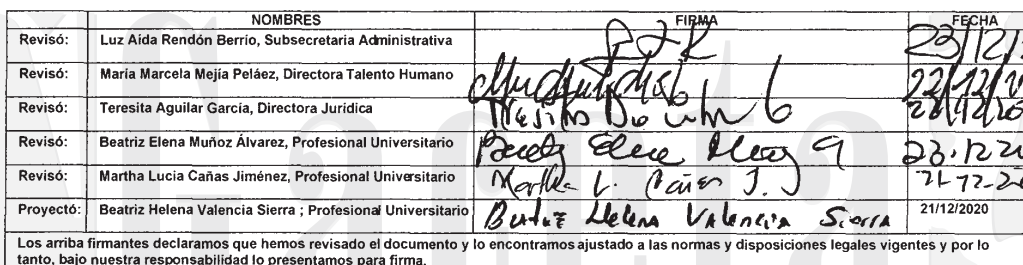 NOMBRES FIRMA FECHA
Revisó: Luz Aída Rendón Berrio, Subsecretaria Administrativa 23/12/
Revisó: María Marcela Mejía Peláez, Directora Talento Humano 22/12/
Revisó: Teresita Aguilar García, Directora Jurídica
Revisó: Beatriz Elena Muñoz Álvarez, Profesional Universitario Elena 23.12.20
Revisó: Martha Lucia Cañas Jiménez, Profesional Universitario Martha L. Cañas J.
Proyectó: Beatriz Helena Valencia Sierra ; Profesional Universitario Beatriz Helena Valencia Sierra 21/12/2020
Los arriba firmantes declaramos que hemos revisado el documento y lo encontramos ajustado a las normas y disposiciones legales vigentes y por lo
tanto, bajo nuestra responsabilidad lo presentamos para firma.